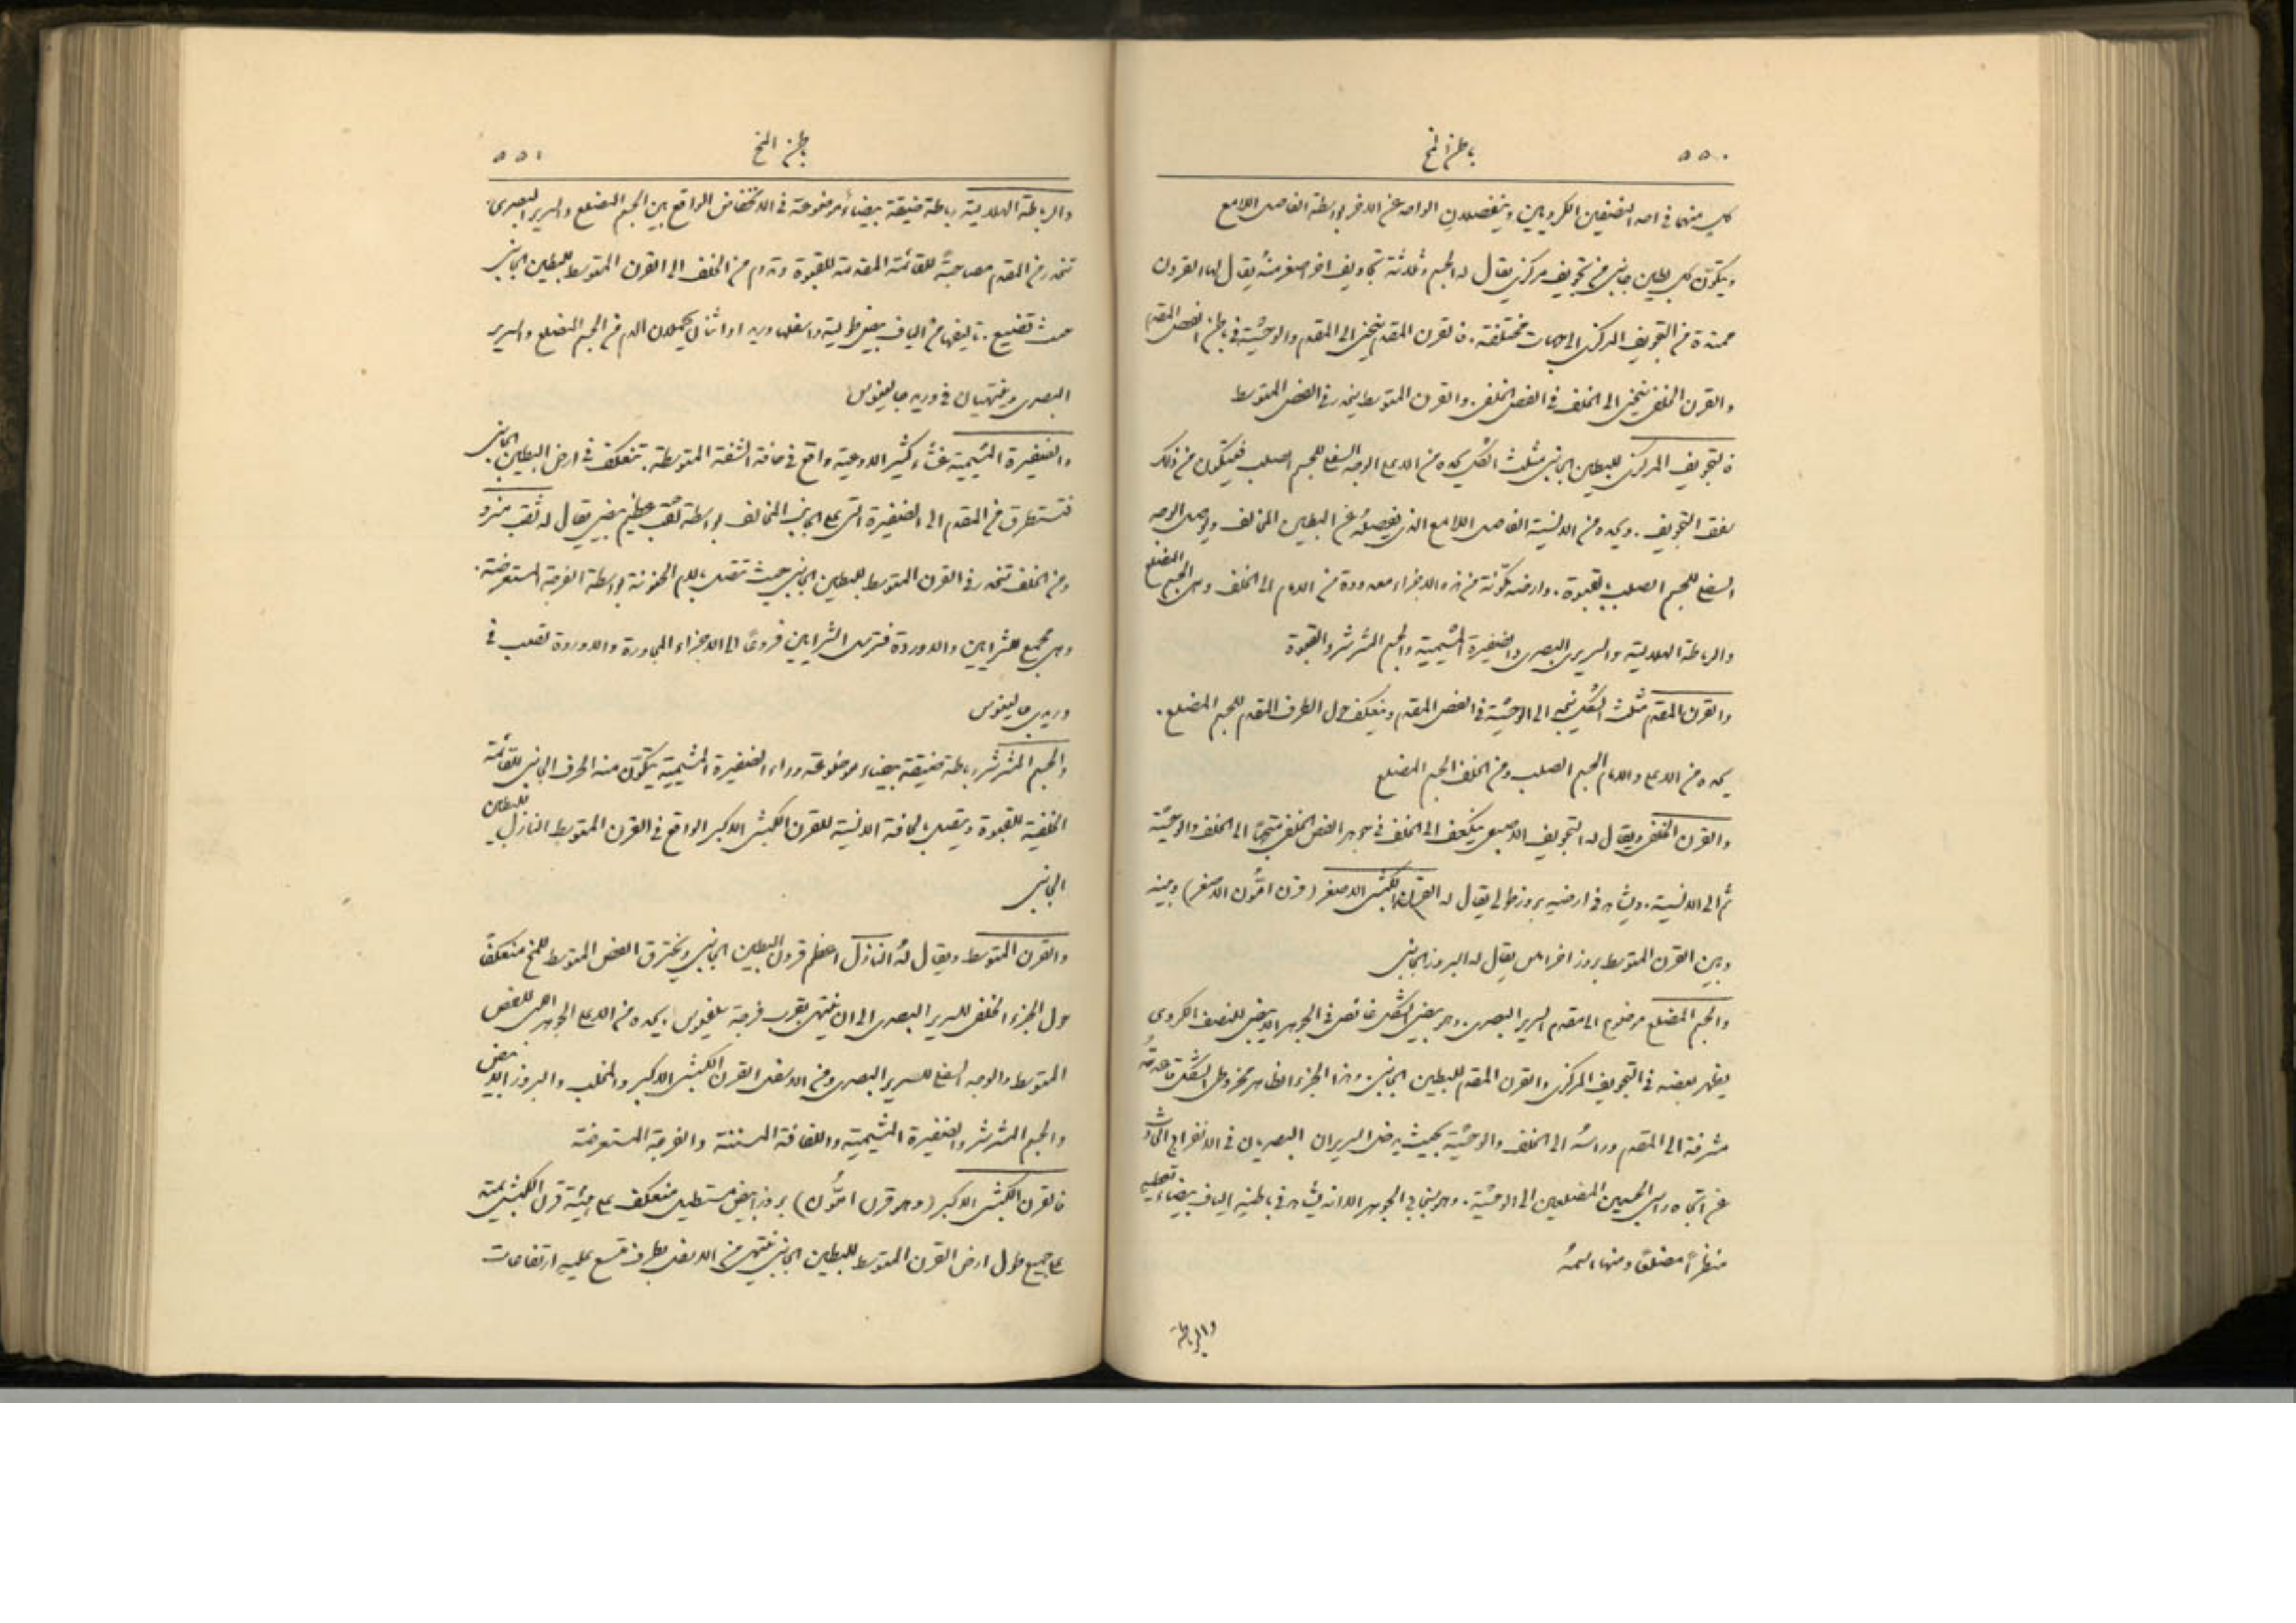 ٥٥٠ باطن المخ
كل منهما في احد النصفين الكرويين وينفصلان الواحد عن الاخر بواسطة الفاصل اللامع
ويتكون كل بطين جانبي من تجويف مركزي يقال له الجسم وثلاثة تجاويف اخر اصغر منه يقال لها القرون
ممتدة من التجويف المركزي الى جهات مختلفة. فالقرن المقدم ينحني الى المقدم والوحشية في باطن الفص المقدم
والقرن الخلفي ينحني الى الخلف في الفص الخلفي. والقرن المتوسط ينحدر في الفص المتوسط
فالتجويف المركزي للبطين الجانبي مثلث الشكل يحده من الاعلى الوجه السفلي للجسم الصلب فيتكون من ذلك
سقف التجويف. ويحده من الانسية الفاصل اللامع الذي يفصله عن البطين المخالف ويوصل الوجه
السفلي للجسم الصلب بالقبوة. وارضه مكونة من هذه الاجزاء معدودة من الامام الى الخلف وهي الجسم المضلع
والرباطة الهلالية والسرير البصري والضفيرة المشيمية والجسم المشرشر والقبوة
والقرن المقدم مثلث الشكل يتجه الى الوحشية في الفص المقدم وينعكف حول الطرف المقدم للجسم المضلع.
يحده من الاعلى والامام الجسم الصلب ومن الخلف الجسم المضلع
والقرن الخلفي ويقال له التجويف الاصبعي ينعكف الى الخلف في جوهر الفص الخلفي متجها الى الخلف والوحشية
ثم الى الانسية. ويشاهد في ارضه بروز طولي يقال له القرن الكبشي الاصغر (قرن امون الاصغر) وبينه
وبين القرن المتوسط بروز اخر املس يقال له البروز الجانبي
والجسم المضلع موضوع الى مقدم السرير البصري. وهو بيضي الشكل غائص في الجوهر الابيض للنصف الكروي
يظهر بعضه في التجويف المركزي والقرن المقدم للبطين الجانبي. وهذا الجزء الظاهر مخروطي الشكل قاعدته
مشرفة الى المقدم وراسه الى الخلف والوحشية بحيث يدخل السريران البصريان في الانفراج الحادث
عن اتجاه راسي الجسمين المضلعين الى الوحشية. وهو سنجابي الجوهر الا انه يشاهد في باطنه الياف بيضاء تعطيه
منظرًا مضلعًا ومنها اسمه
والرباطة
باطن المخ ٥٥١
والرباطة الهلالية رباطة ضيقة بيضاء موضوعة في الانخفاض الواقع بين الجسم المضلع والسرير البصري.
تنحدر من المقدم مصاحبة للقائمة المقدمة للقبوة وتدوم من الخلف الى القرن المتوسط للبطين الجانبي
حيث تضيع. تاليفها من الياف بيض طولية واسفلها وريد او اثنان يحملان الدم من الجسم المضلع والسرير
البصري وينتهيان في وريد جالينوس
والضفيرة المشيمية غشاء كثير الاوعية واقع في حافة الشقة المتوسطة. تنعكف في ارض البطين الجانبي.
فتستطرق من المقدم الى الضفيرة التي على الجانب المخالف بواسطة ثقب عظيم بيضي يقال له ثقب منرو
ومن الخلف تنحدر في القرن المتوسط للبطين الجانبي حيث تتصل بالام الحنونة بواسطة الفرجة المستعرضة.
وهي مجمع للشرايين والاوردة فترسل الشرايين فروعًا الى الاجزاء المجاورة والاوردة تصب في
وريدي جالينوس
والجسم المشرشر رباطة ضيقة بيضاء موضوعة وراء الضفيرة المشيمية يتكون منه الحرف الجانبي للقائمة
الخلفية للقبوة ويتصل بالحافة الانسية للقرن الكبشي الاكبر الواقع في القرن المتوسط النازل للبطين
الجانبي
والقرن المتوسط ويقال له النازل اعظم قرون البطين الجانبي ويخترق الفص المتوسط للمخ منعكفًا
حول الجزء الخلفي للسرير البصري الى ان ينتهي بقرب فرجة سلفيوس. يحده من الاعلى الجوهر للفص
المتوسط والوجه السفلي للسرير البصري ومن الاسفل القرن الكبشي الاكبر والمخلب والبروز الابيض
والجسم المشرشر والضفيرة المشيمية واللفافة المسننة والفرجة المستعرضة
فالقرن الكبشي الاكبر (وهو قرن امون) بروز ابيض مستطيل منعكف على هيئة قرن الكبش يمتد
على جميع طول ارض القرن المتوسط للبطين الجانبي ينتهي من الاسفل بطرف متسع عليه ارتفاعات